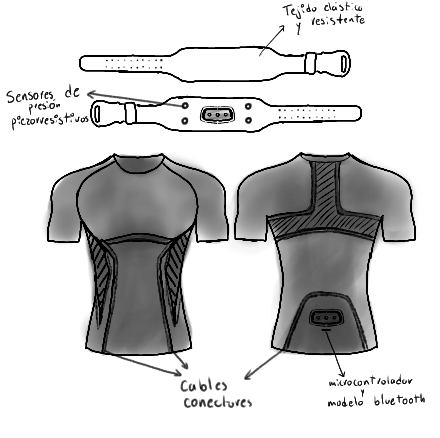 Tejido elástico
y resistente
Sensores de
presión
piezorresistivos
Cables
conectores
microcontrolador
y
modelo bluetooth